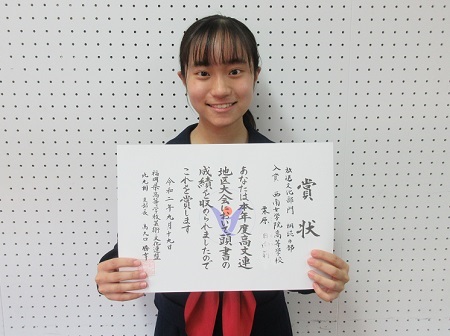 賞状
放送文化部門 朗読の部
入賞 西南女学院高等学校
栗原
あなたは本年度高文連
地区大会において頭書の
成績を収められましたので
これを賞します
令和二年九月十九日
福岡県高等学校芸術文化連盟
北九州支部長